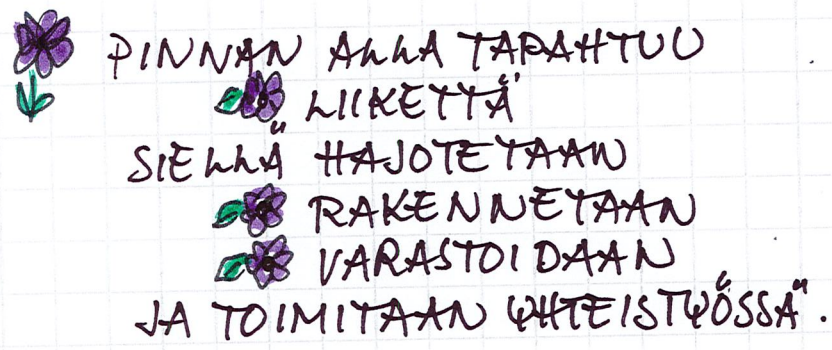 PINNAN ALLA TAPAHTUU
LIIKETTÄ
SIELLÄ HAJOTETAAN
RAKENNETAAN
VARASTOIDAAN
JA TOIMITAAN YHTEISTYÖSSÄ.